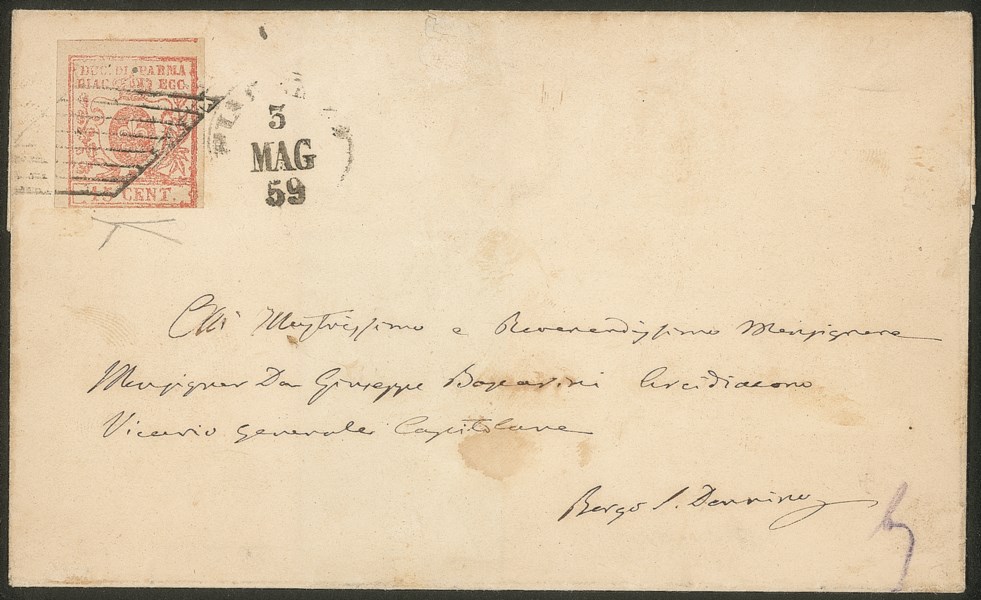 DUC. DI PARMA
PIACENZA ECC.
15 CENT.
3
MAG
59
All' Illustrissimo e Reverendissimo Monsignore
Monsignor Don Giuseppe Arcidiacono
Vicario Generale Capitolare
Borgo S. Donnino